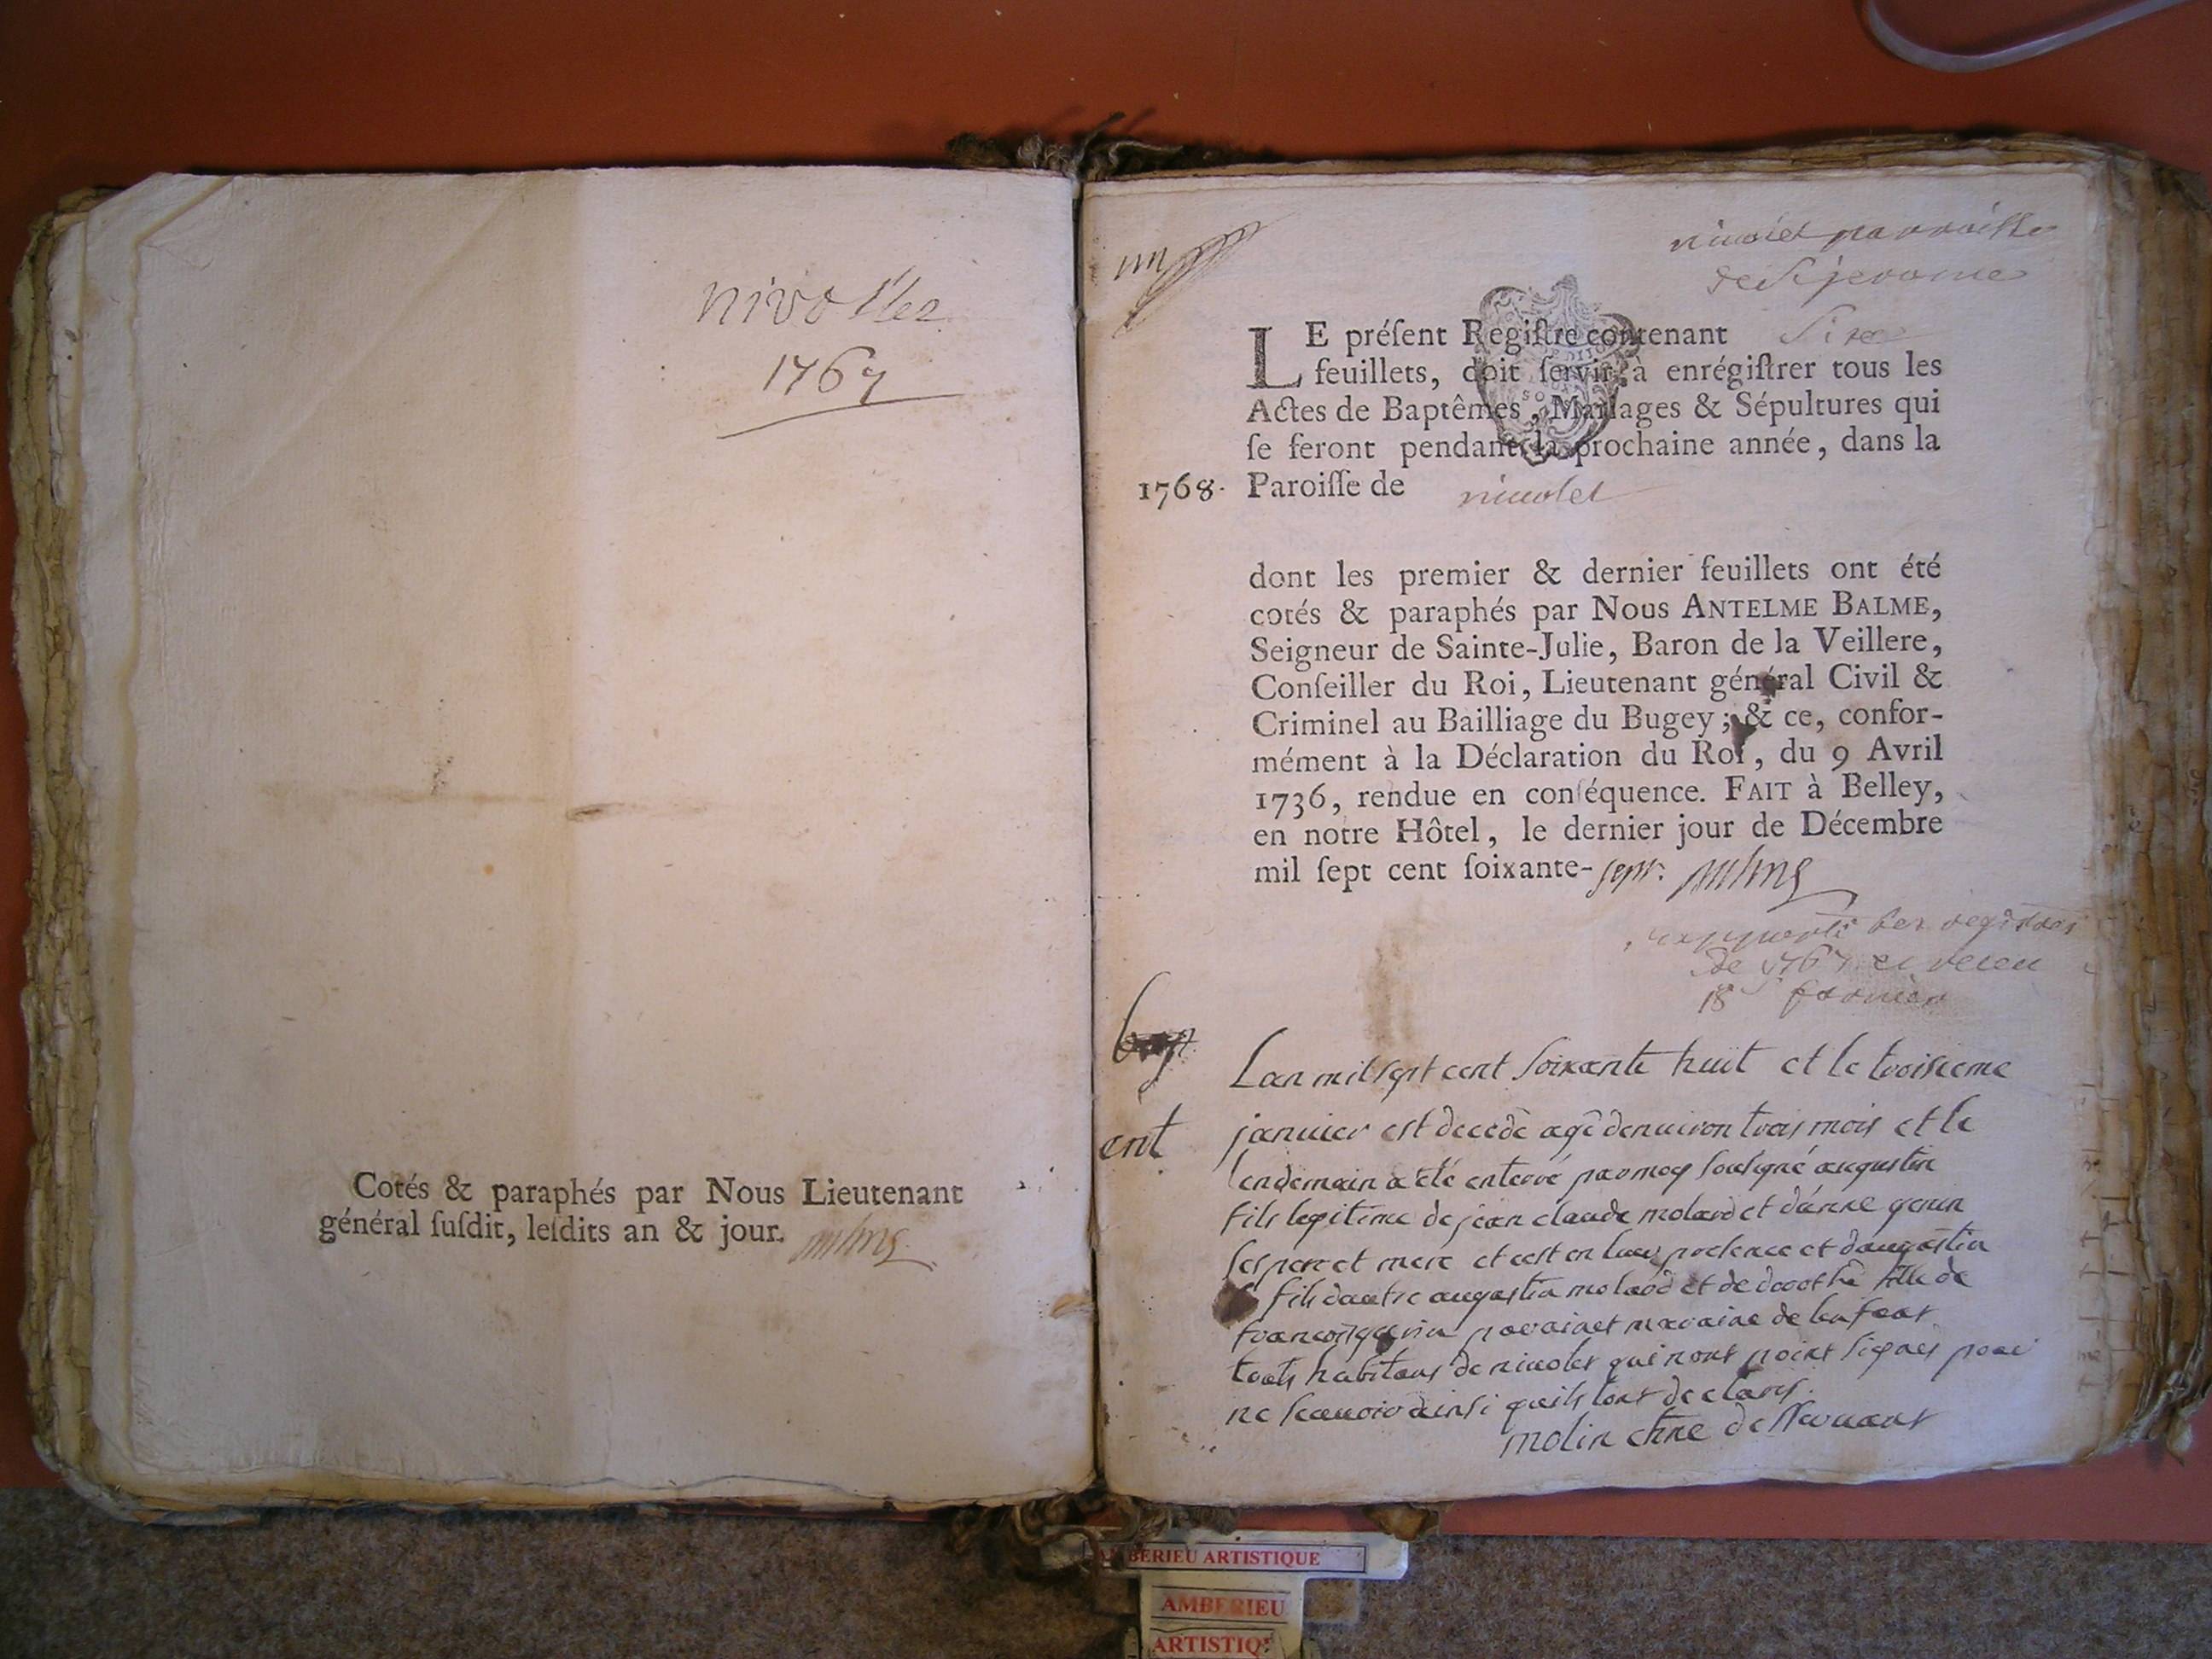 nivollet
1767
Cotés & paraphés par Nous Lieutenant
général ſuſdit, leſdits an & jour.
nivolet parroisse
de St jerome
LE préſent Regiſtre contenant Six
feuillets, doit ſervir à enrégiſtrer tous les
Actes de Baptêmes, Mariages & Sépultures qui
ſe feront pendant la prochaine année, dans la
1768. Paroiſſe de nivolet
dont les premier & dernier feuillets ont été
cotés & paraphés par Nous ANTELME BALME,
Seigneur de Sainte-Julie, Baron de la Veillere,
Conſeiller du Roi, Lieutenant général Civil &
Criminel au Bailliage du Bugey; & ce, confor-
mément à la Déclaration du Roi, du 9 Avril
1736, rendue en conſéquence. FAIT à Belley,
en notre Hôtel, le dernier jour de Décembre
mil ſept cent ſoixante-sept.
les registres
de 1767
18
ent
Lan mil sept cent soixante huit et le troisieme
janvier est decedé agé denuiron trois mois et le
lendemain a été enterré par moy soussigné augustin
fils legitime de jean claude molard et d'anne genin
ses pere et mere et cest en leur presence et daugustin
fils dautre augustin molard et de dorothé fille de
francois genin parain et maraine de lenfant
touts habitans de nivolet qui nont point signés pour
ne scauoir ainsi quils lont declarés.
molin
AMBERIEU ARTISTIQUE
AMBERIEU
ARTISTIQ